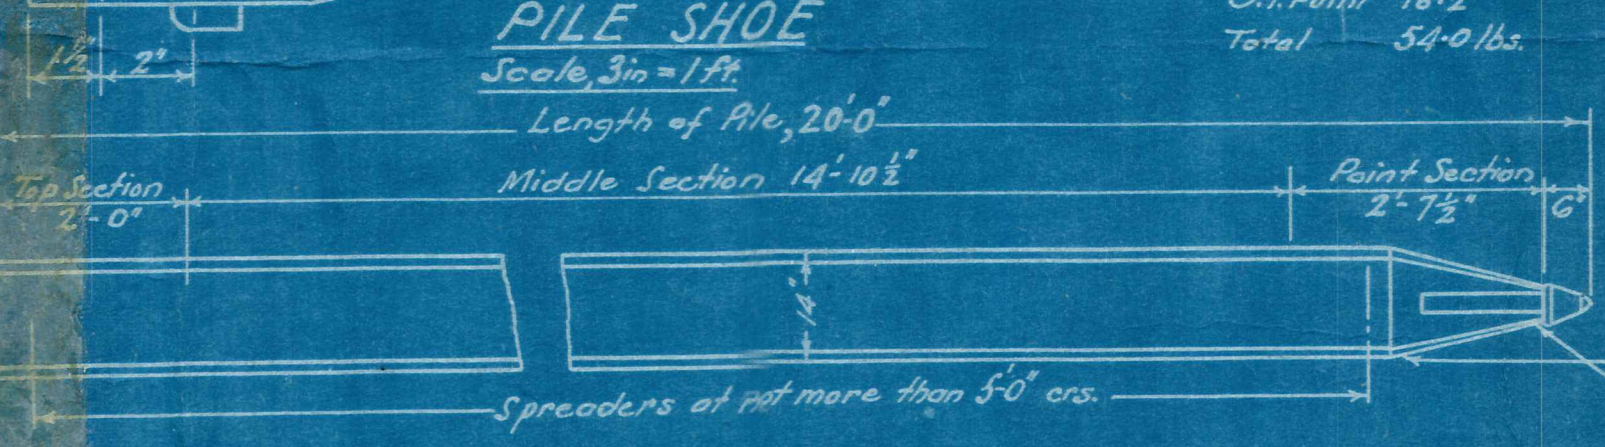 PILE SHOE
Scale, 3in = 1ft.
Total 54·0 lbs.
1½" 2"
Length of Pile, 20'-0"
Top Section
2'-0"
Middle Section 14'-10½"
Point Section
2'-7½"
6"
14"
Spreaders at not more than 5'-0" crs.